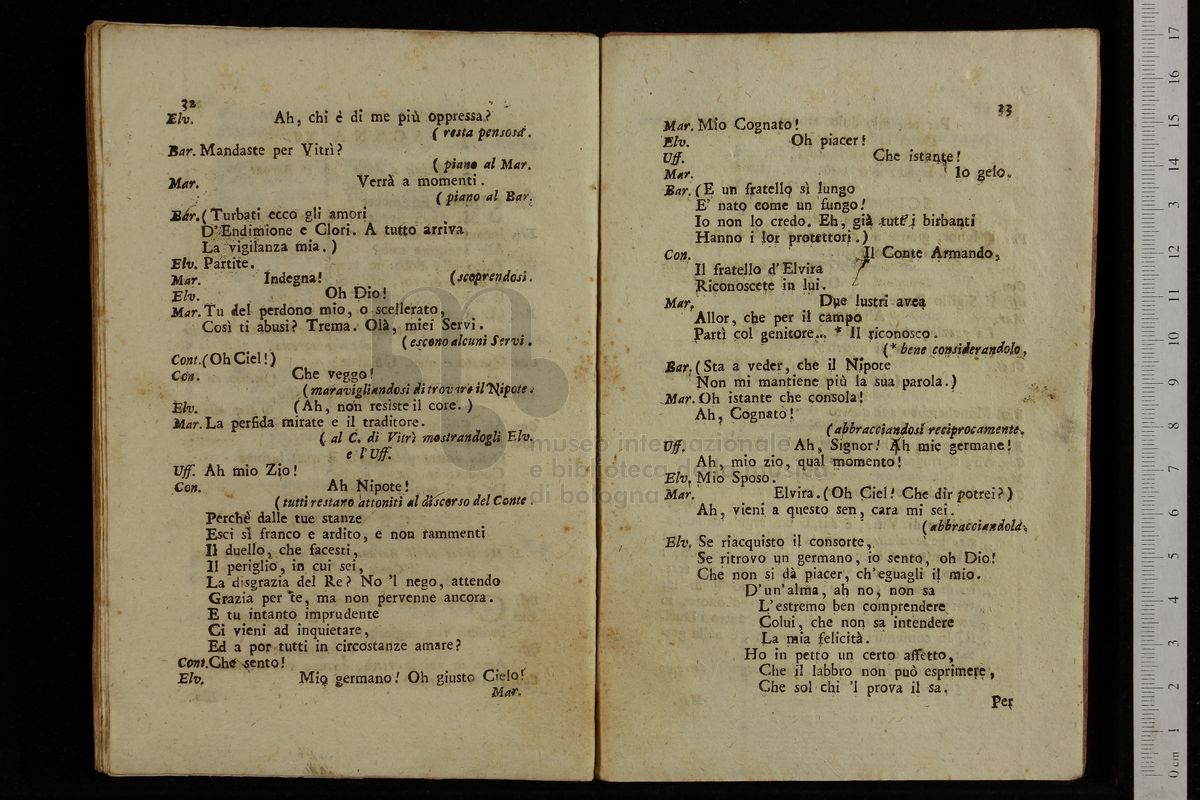 32
Elv. Ah, chi è di me più oppressa?
( resta pensosa.
Bar. Mandaste per Vitrì?
( piano al Mar.
Mar. Verrà a momenti.
( piano al Bar.
Bar. ( Turbati ecco gli amori
D'Endimione e Clori. A tutto arriva
La vigilanza mia. )
Elv. Partite.
Mar. Indegna! (scoprendosi.
Elv. Oh Dio!
Mar. Tu del perdono mio, o scellerato,
Così ti abusi? Trema. Olà, miei Servi.
( escono alcuni Servi.
Cont. ( Oh Ciel! )
Con. Che veggo!
( maravigliandosi di trovare il Nipote.
Elv. (Ah, non resiste il core. )
Mar. La perfida mirate e il traditore.
( al C. di Vitrì mostrandogli Elv.
e l'Uff.
Uff. Ah mio Zio!
Con. Ah Nipote!
( tutti restano attoniti al discorso del Conte.
Perchè dalle tue stanze
Esci sì franco e ardito, e non rammenti
Il duello, che facesti,
Il periglio, in cui sei,
La disgrazia del Re? No 'l nego, attendo
Grazia per te, ma non pervenne ancora.
E tu intanto imprudente
Ci vieni ad inquietare,
Ed a por tutti in circostanze amare?
Cont. Che sento!
Elv. Mio germano! Oh giusto Cielo!
Mar.
33
Mar. Mio Cognato!
Elv. Oh piacer!
Uff. Che istante!
Mar. Io gelo.
Bar. (E un fratello sì lungo
E' nato come un fungo!
Io non lo credo. Eh, già tutt'i birbanti
Hanno i lor protettori.)
Con. Il Conte Armando,
Il fratello d'Elvira
Riconoscete in lui.
Mar. Due lustri avea
Allor, che per il campo
Partì col genitore... * Il riconosco.
(* bene considerandolo.
Bar. ( Sta a veder, che il Nipote
Non mi mantiene più la sua parola.)
Mar. Oh istante che consola!
Ah, Cognato!
(abbracciandosi reciprocamente.
Uff. Ah, Signor! Ah mie germane!
Ah, mio zio, qual momento!
Elv. Mio Sposo.
Mar. Elvira. (Oh Ciel! Che dir potrei?)
Ah, vieni a questo sen, cara mi sei.
(abbracciandola.
Elv. Se riacquisto il consorte,
Se ritrovo un germano, io sento, oh Dio!
Che non si dà piacer, ch'eguagli il mio.
D'un'alma, ah no, non sa
L'estremo ben comprendere
Colui, che non sa intendere
La mia felicità.
Ho in petto un certo affetto,
Che il labbro non può esprimere,
Che sol chi 'l prova il sa.
Per
museo internazionale
e biblioteca della musica
di bologna
0 cm 1 2 3 4 5 6 7 8 9 10 11 12 13 14 15 16 17